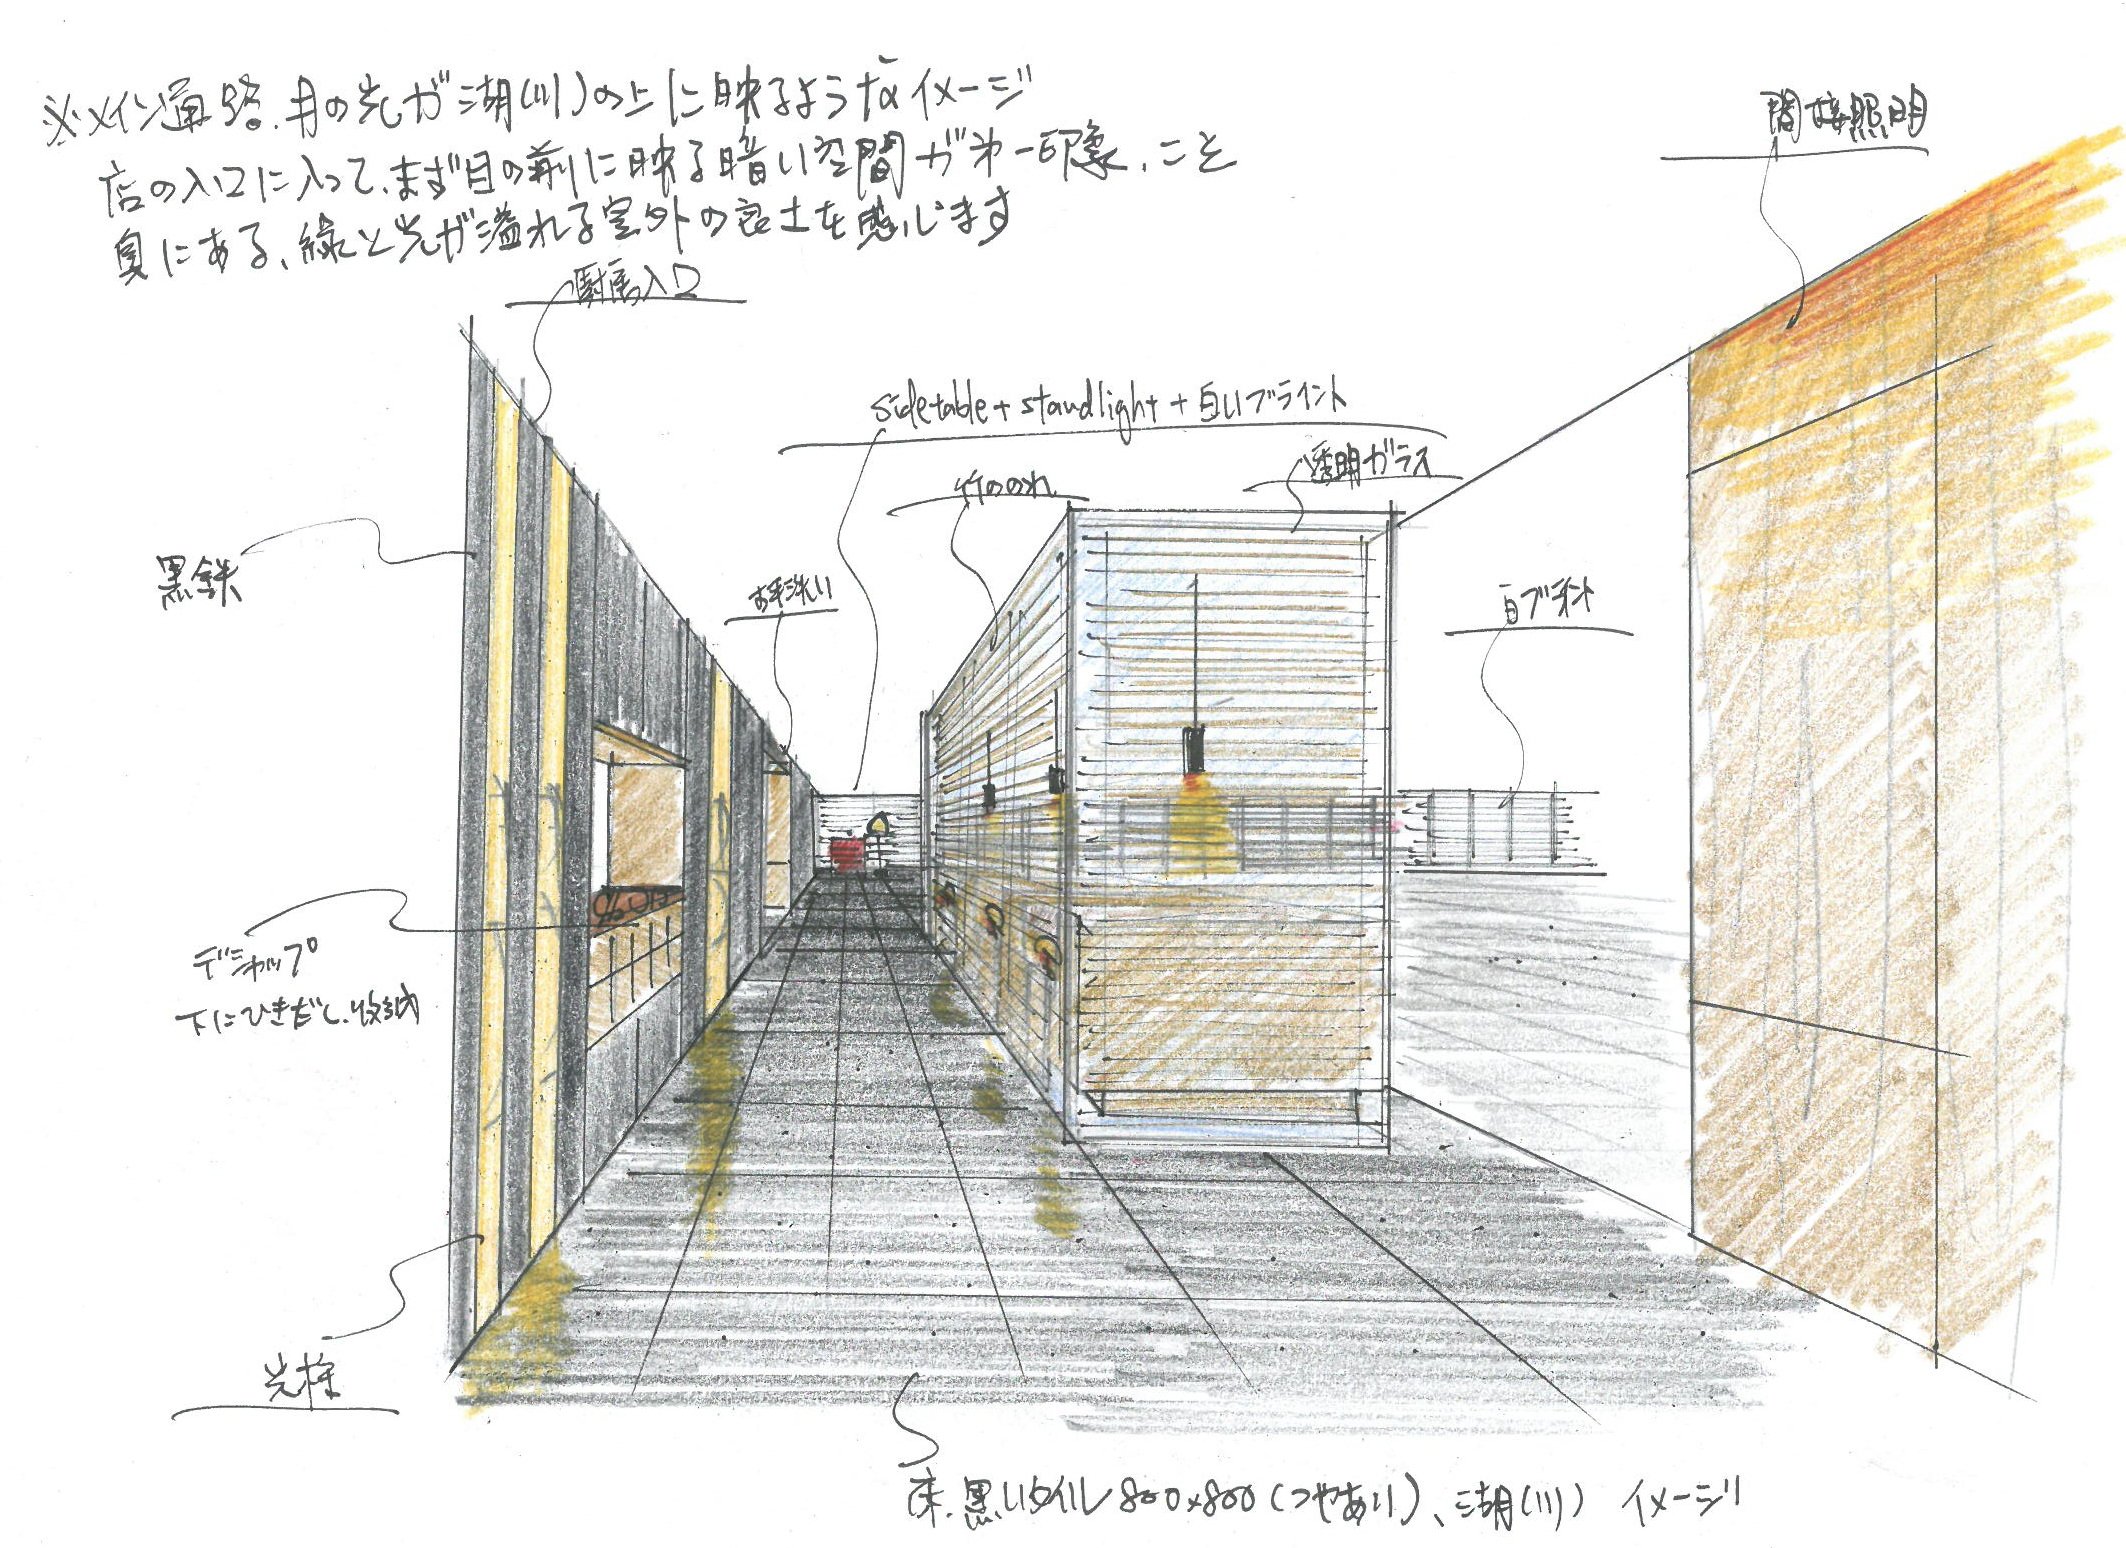 ※メイン通路.月の光が湖(川)の上に映るようなイメージ
店の入口に入って、まず目の前に映る暗い空間が第一印象、こと
奥にある、緑と光が溢れる室外の富士を感じます
間接照明
厨房入口
sidetable + standlight + 白いブライント
透明ガラス
竹ののれ
黒鉄
お手洗い
白ブライント
デシャップ
下にひきだし、収納
光柱
床.黒いタイル800×800(つやあり)、湖(川) イメージ